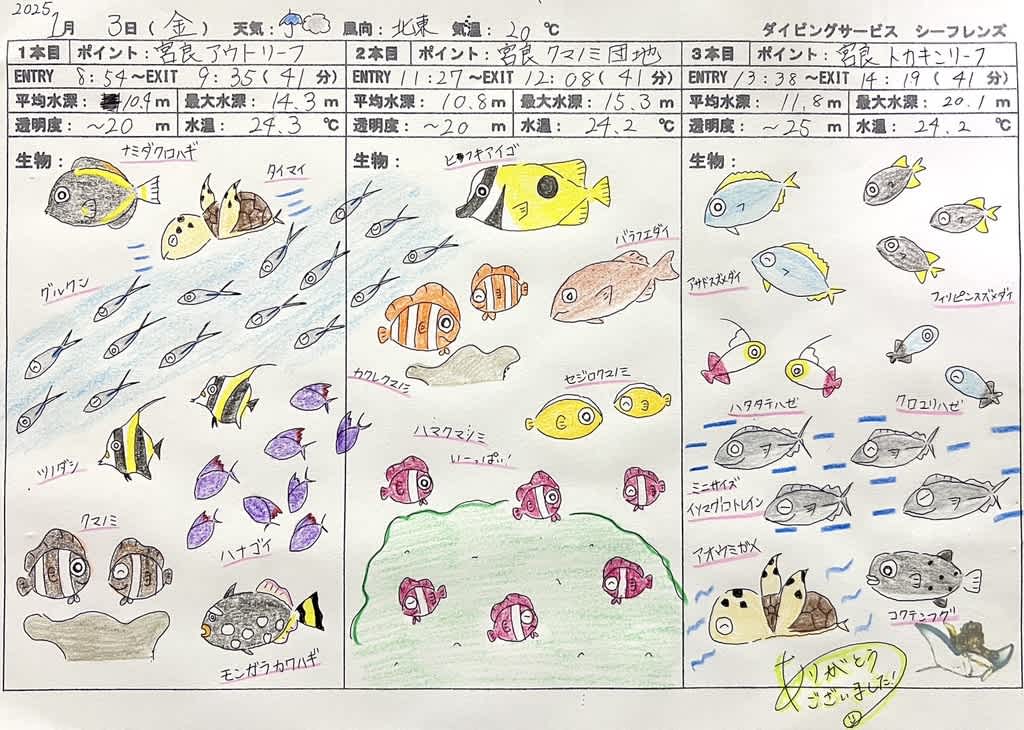 2025
1月 3日(金) 天気: 風向: 北東 気温: 20 ℃ ダイビングサービス シーフレンズ
1本目 ポイント: 宮良 アウトリーフ
ENTRY 8:54～EXIT 9:35(41分)
平均水深: 10.9m 最大水深: 14.3m
透明度: ～20 m 水温: 24.3 ℃
生物:
ナミダクロハギ
タイマイ
グルクン
ツノダシ
クマノミ
ハナゴイ
モンガラカワハギ
2本目 ポイント: 宮良 クマノミ団地
ENTRY 11:27～EXIT 12:08(41分)
平均水深: 10.8m 最大水深: 15.3m
透明度: ～20 m 水温: 24.2 ℃
生物:
ヒフキアイゴ
バラフエダイ
カクレクマノミ
セジロクマノミ
ハマクマノミ
いーっぱい!
3本目 ポイント: 宮良 トカキンリーフ
ENTRY 13:38～EXIT 14:19(41分)
平均水深: 11.8m 最大水深: 20.1m
透明度: ～25 m 水温: 24.2 ℃
生物:
アサドスズメダイ
フィリピンスズメダイ
ハタタテハゼ
クロユリハゼ
ミニサイズ
イソマグロトレイン
アオウミガメ
コクテンフグ
ありがとう
ございました!